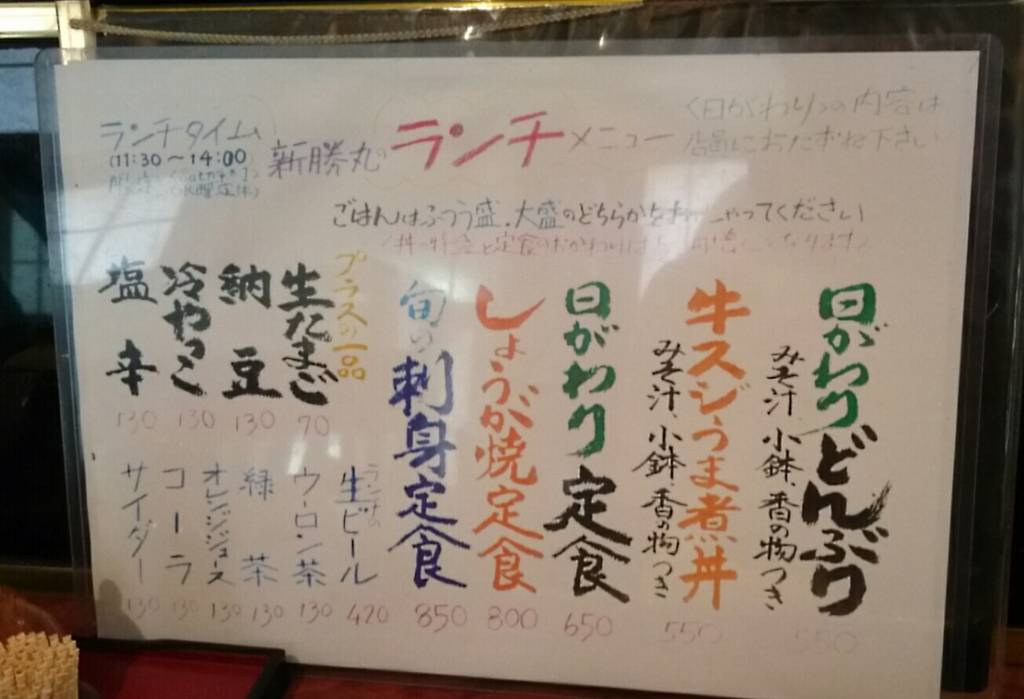 ランチタイム
(11:30～14:00)
新勝丸の ランチメニュー
〈日がわり〉の内容は
店員におたずね下さい
ごはんはふつう盛、大盛のどちらかをおっしゃってください
日がわりどんぶり
みそ汁、小鉢、香の物つき
550
牛スジうま煮丼
みそ汁、小鉢、香の物つき
550
日がわり定食
650
しょうが焼定食
800
旬の刺身定食
850
プラスの一品
生たまご
70
納豆
130
冷やっこ
130
塩辛
130
生ビール
420
ウーロン茶
130
緑茶
130
オレンジジュース
130
コーラ
130
サイダー
130